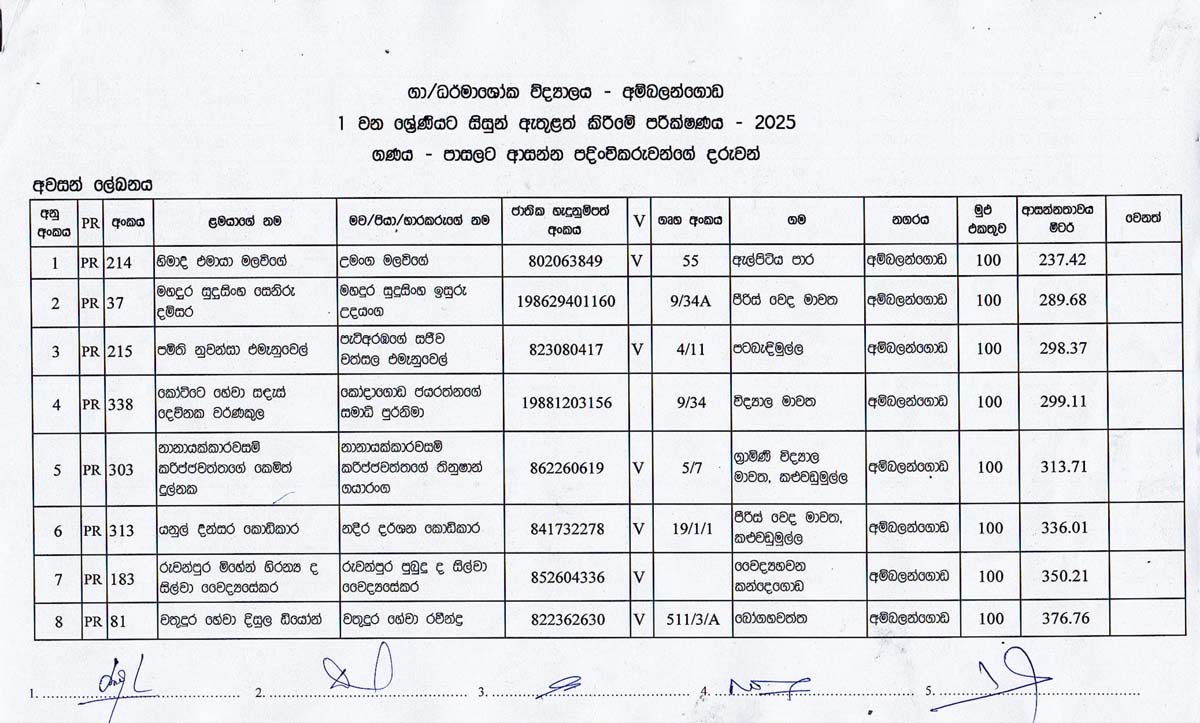 ගා/ධර්මාශෝක විද්‍යාලය - අම්බලන්ගොඩ
1 වන ශ්‍රේණියට සිසුන් ඇතුළත් කිරීමේ පරීක්ෂණය - 2025
ගණය - පාසලට ආසන්න පදිංචිකරුවන්ගේ දරුවන්
අවසන් ලේඛනය
අනු අංකය PR අංකය ළමයාගේ නම මව/පියා/භාරකරුගේ නම ජාතික හැඳුනුම්පත් අංකය V ගෘහ අංකය ගම නගරය මුළු එකතුව ආසන්නතාවය මීටර් වෙනත්
1 PR 214 හිමාදි එමායා මලවිගේ උමංග මලවිගේ 802063849 V 55 ඇල්පිටිය පාර අම්බලන්ගොඩ 100 237.42
2 PR 37 මහදුර සුදුසිංහ සෙනිරු දම්සර මහදුර සුදුසිංහ ඉසුරු උදයංග 198629401160 9/34A පීරිස් වෙද මාවත අම්බලන්ගොඩ 100 289.68
3 PR 215 පමිති නුවන්සා එමැනුවෙල් පැටිඅරඹගේ සජීව වත්සල එමැනුවෙල් 823080417 V 4/11 පටබැඳිමුල්ල අම්බලන්ගොඩ 100 298.37
4 PR 338 කෝට්ටෙ හේවා සඳැස් දෙව්නක වර්ණකුල කෝදාගොඩ ජයරත්නගේ සමාධි පූර්නිමා 19881203156 9/34 විද්‍යාල මාවත අම්බලන්ගොඩ 100 299.11
5 PR 303 නානායක්කාරවසම් කරිජ්ජවත්තගේ කෙමිත් දුල්නක නානායක්කාරවසම් කරිජ්ජවත්තගේ තිනුෂාන් ගයාරංග 862260619 V 5/7 ග්‍රාමිණී විද්‍යාල මාවත, කළුවඩුමුල්ල අම්බලන්ගොඩ 100 313.71
6 PR 313 යනුල් දින්සර කොඩිකාර නදීර දර්ශන කොඩිකාර 841732278 V 19/1/1 පීරිස් වෙද මාවත, කළුවඩුමුල්ල අම්බලන්ගොඩ 100 336.01
7 PR 183 රුවන්පුර මිහේන් හිරන්‍ය ද සිල්වා වෛද්‍යසේකර රුවන්පුර පුබුදු ද සිල්වා වෛද්‍යසේකර 852604336 V වෛද්‍යභවන කන්දෙගොඩ අම්බලන්ගොඩ 100 350.21
8 PR 81 වතුදුර හේවා දිසුල ඩියෝන් වතුදුර හේවා රවීන්ද්‍ර 822362630 V 511/3/A බෝගහවත්ත අම්බලන්ගොඩ 100 376.76
1. 2. 3. 4. 5.